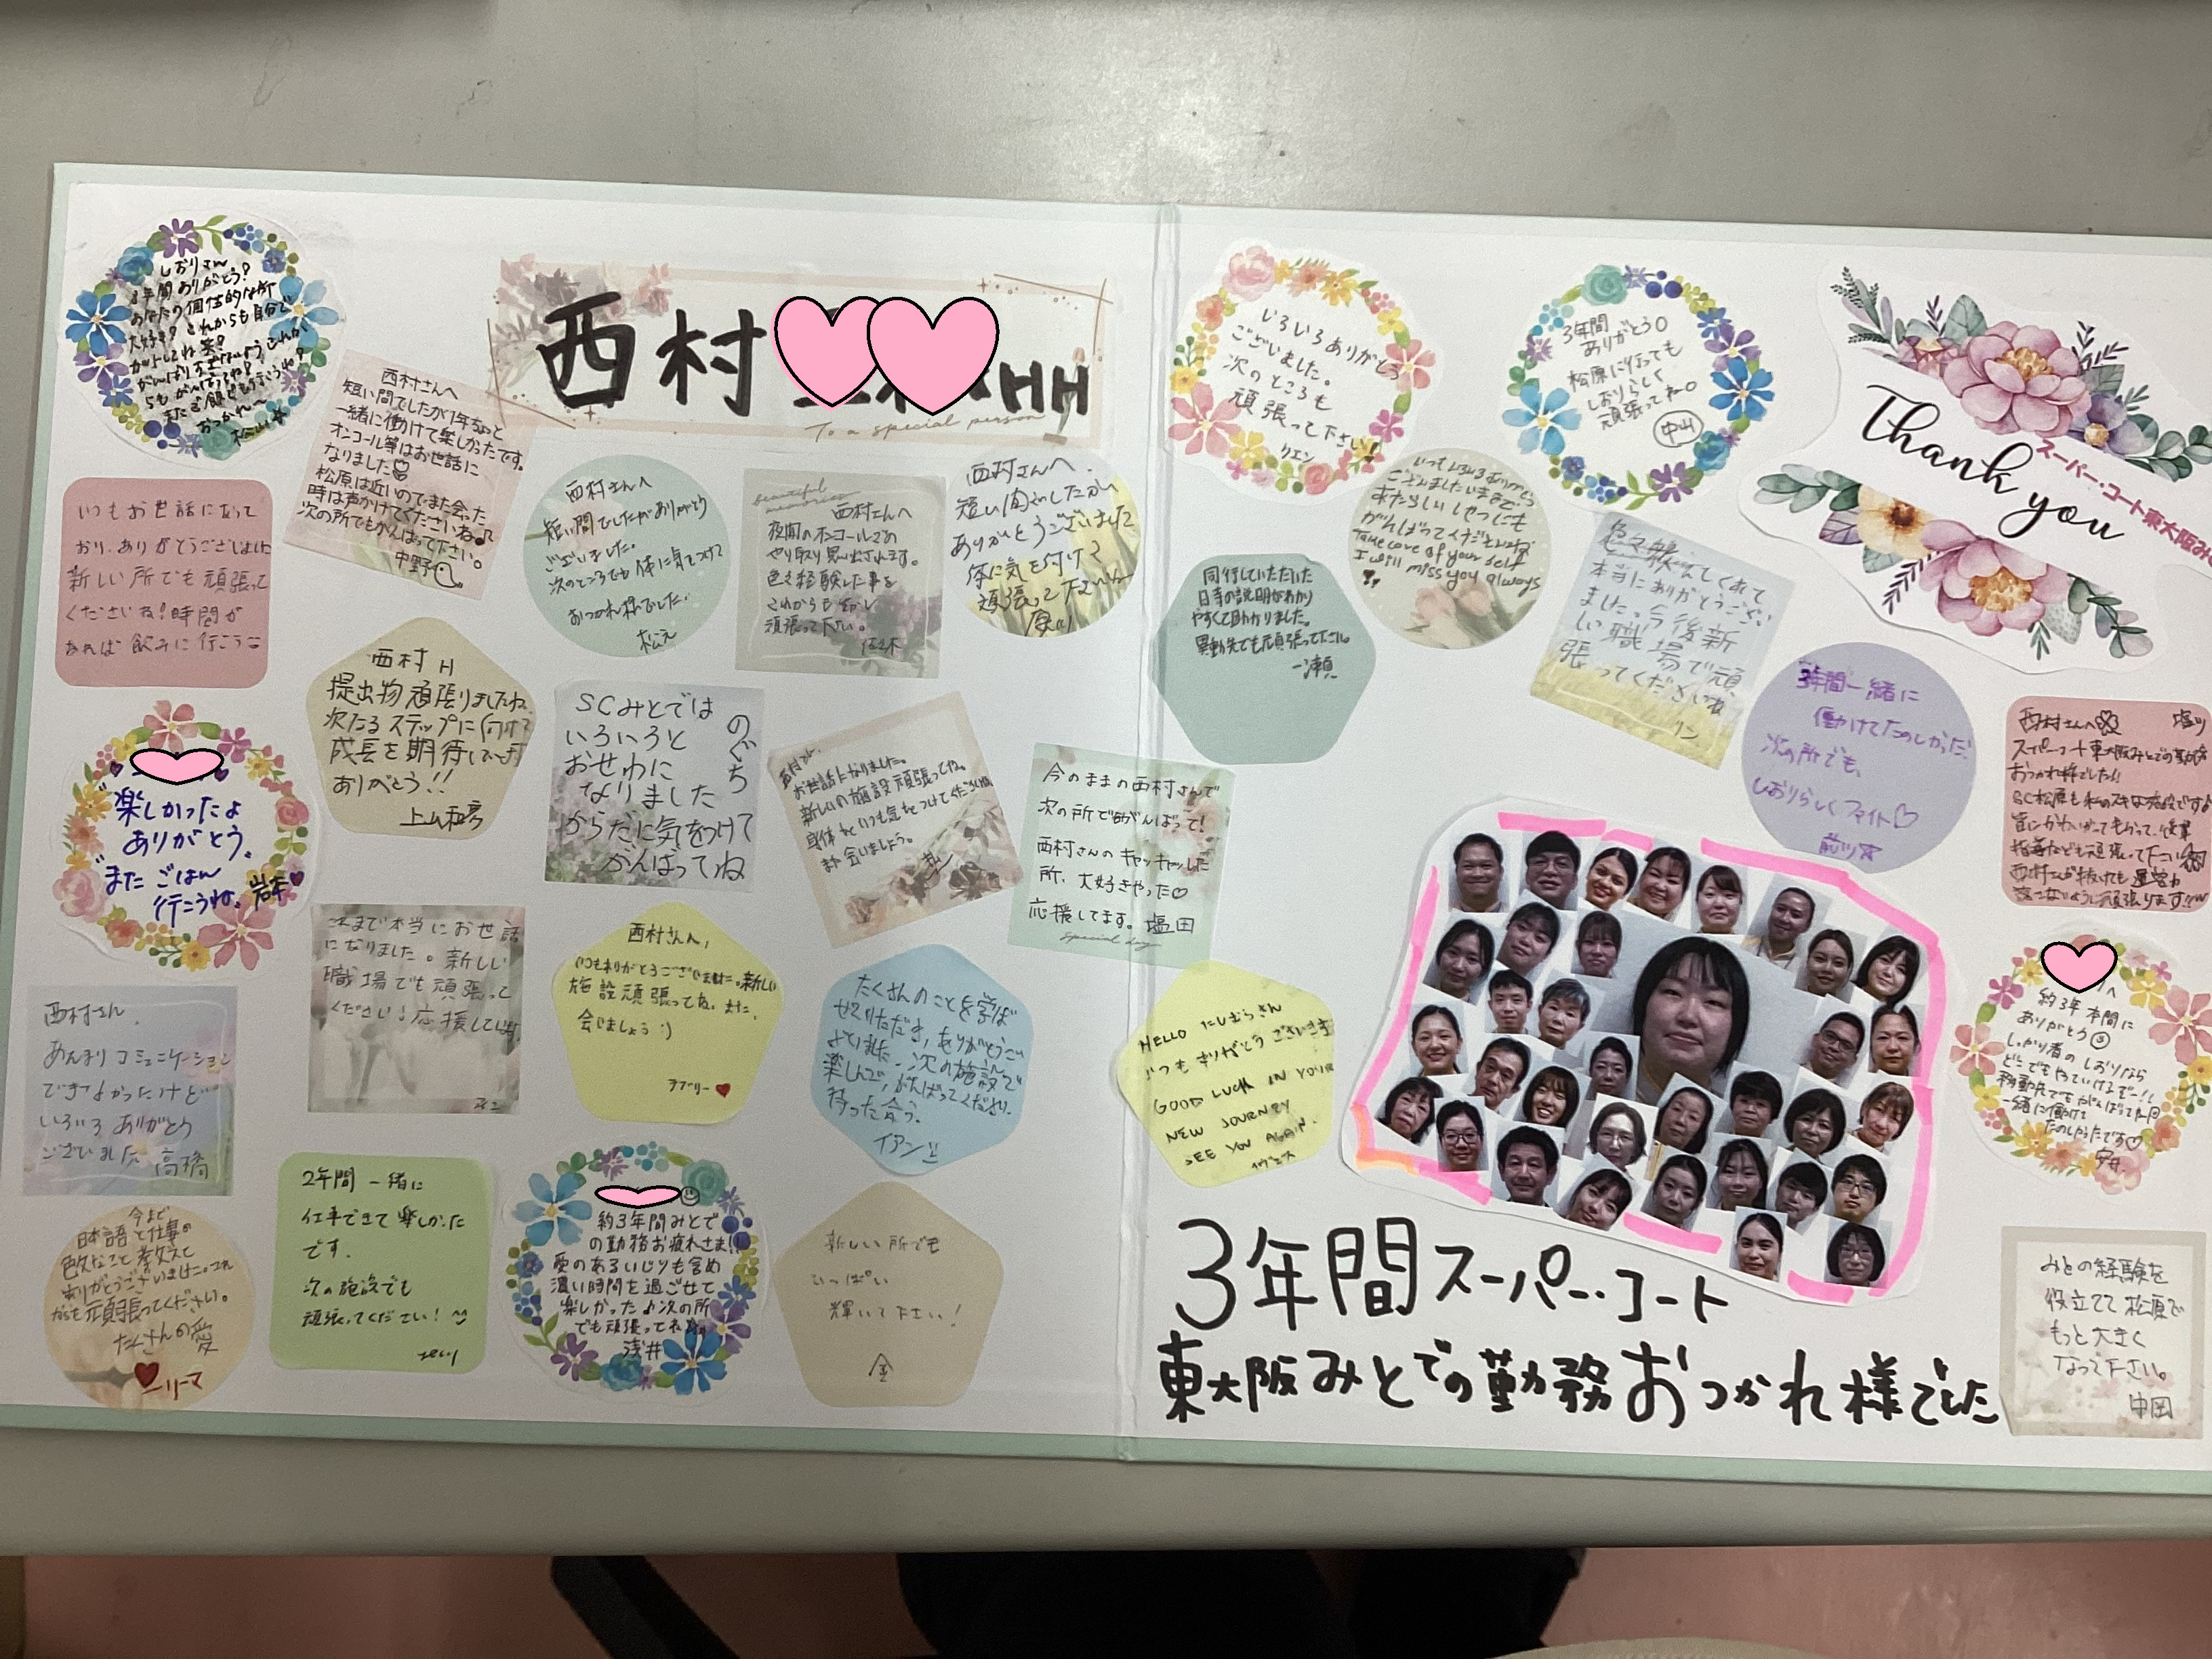 西村
HH
To a special person
しおりさん
3年間ありがとう?
あなたの個性的な所
大好き? これからも自分で
またご飯でも行こうね?
おつかれ〜
松山
西村さんへ
短い間でしたが1年ちょっと
一緒に働けて楽しかったです。
オンコール等はお世話に
なりました
松原は近いのでまた会った
時は声かけてくださいね♪
次の所でもがんばって下さい。
中野
いつもお世話になって
おり、ありがとうございました
新しい所でも頑張って
くださいね!時間が
あれば飲みに行こう
西村さんへ
短い間でしたがありがとう
ございました。
次のところでも体に気をつけて
おつかれ様でした。
松元
beautiful
memories
西村さんへ
夜間のオンコールでの
やり取り思い出されます。
色々経験した事を
これからも活かし
頑張って下さい。
佐々木
西村さんへ
短い間でしたが
ありがとうございました
体に気を付けて
頑張って下さいね
西村 H
提出物頑張りましたね
次なるステップに向けて
成長を期待しています
ありがとう!!
SCみとでは
いろいろと
おせわに
なりました
からだに気をつけて
がんばってね
のぐち
お世話になりました。
新しいの施設頑張ってね。
身体もいつも気をつけてくださいね
また会いましょう。
今のままの西村さんで
次の所でもがんばって!
西村さんのキャッキャッした
所、大好きやった♡
応援してます。塩田
special day
楽しかったよ
ありがとう。
また ごはん
行こうね。岩本
これまで本当にお世話
になりました。新しい
職場でも頑張って
ください!応援しています
西村さん,
いつもありがとうございました。新しい
施設頑張ってね。また、
会いましょう :)
ラブリー
たくさんのことを学ば
せていただき、ありがとうござ
いました。次の施設で
楽しんで、がんばってください。
イアン
西村さん.
あんまりコミュニケーション
できなかったけど
いろいろありがとう
ございました 高橋
今まで
日本語と仕事の
色々なこと教えて
ありがとうございました。これ
からも頑張ってください。
たくさんの愛
ニリーマ
2年間 一緒に
仕事できて楽しかった
です.
次の施設でも
頑張ってください!
約3年間みとで
の勤務お疲れさま!!
愛のあるいじりも含め
濃い時間を過ごせて
楽しかった♪次の所
でも頑張ってね
浅井
新しい所でも
いっぱい
輝いて下さい!
金
いろいろありがとう
ございました。
次のところも
頑張って下さい!
リエン
3年間
ありがとう○
松原に行っても
しおりらしく
頑張ってねー○
中山
Thank you
スーパー・コート東大阪み
いつもいろいろありがとう
ございましたいままで。
あたらしいしせつにも
がんばってくださいね
Take care of your self
I will miss you always
同行していただいた
日寺の説明がわかり
やすくて助かりました。
異動先でも頑張って下さい。
一瀬
色々教えてくれて
本当にありがとうござい
ました。今後新
しい職場で頑
張ってくださいね
リン
3年間一緒に
働けてたのしかった!
次の所でも、
しおりらしくファイト♡
西村さんへ
スーパーコート東大阪みとでの勤務
おつかれ様でした!!
SC松原も私のスキな施設ですよ
皆にかわいがってもらって、後輩
指導なども頑張って下さい
HELLO にしむらさん
いつもありがとうございます
GOOD LUCK IN YOUR
NEW JOURNEY
SEE YOU AGAIN.
約3年本間に
ありがとう
しっかり者のしおりなら
どこでもやっていけるぞー!!
移動先でもがんばってね
一緒に働けて
たのしかったです♡
みとの経験を
役立てて松原で
もっと大きく
なって下さい。
中岡
3年間スーパー・コート
東大阪みとでの勤務おつかれ様でした